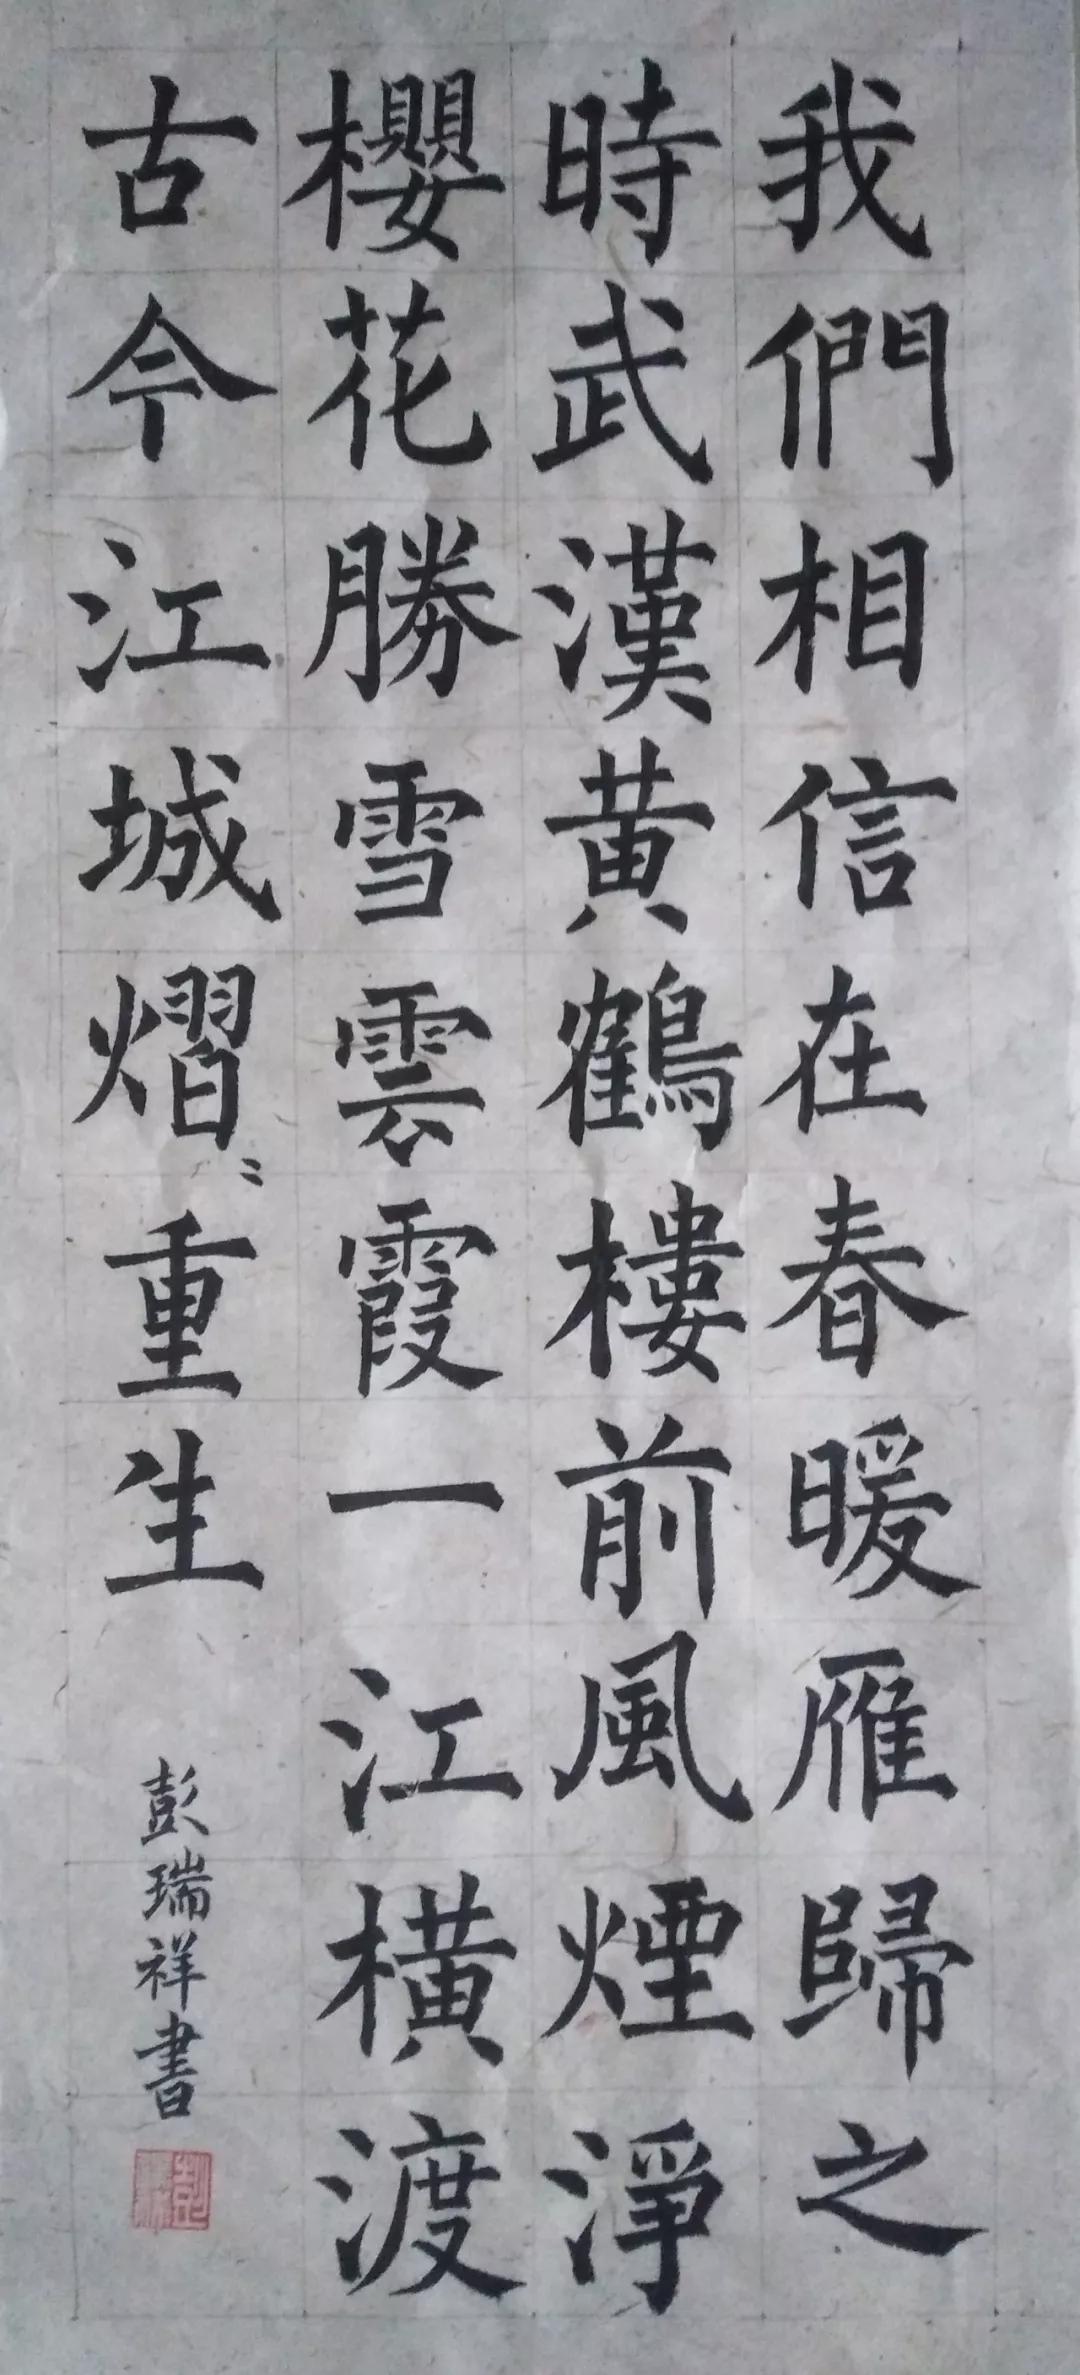 我們相信在春暖雁歸之
時武漢黃鶴樓前風煙淨
櫻花勝雪雲霞一江橫渡
古今江城熠〻重生
彭瑞祥書